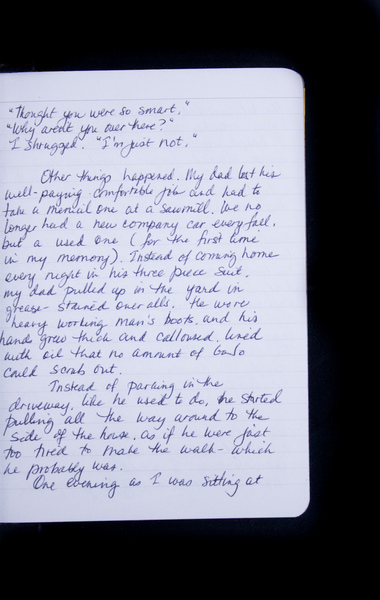 "Thought you were so smart."
"Why aren't you over there?"
I shrugged. "I'm just not."
Other things happened. My dad lost his
well-paying comfortable job and had to
take a menial one at a sawmill. We no
longer had a new company car every fall,
but a used one (for the first time
in my memory). Instead of coming home
every night in his three piece suit,
my dad pulled up in the yard in
grease-stained overalls. He wore
heavy working man's boots, and his
hands grew thick and calloused, lined
with oil that no amount of
could scrub out.
Instead of parking in the
driveway, like he used to do, he started
pulling all the way around to the
side of the house, as if he were just
too tired to make the walk - which
he probably was.
One evening as I was sitting at